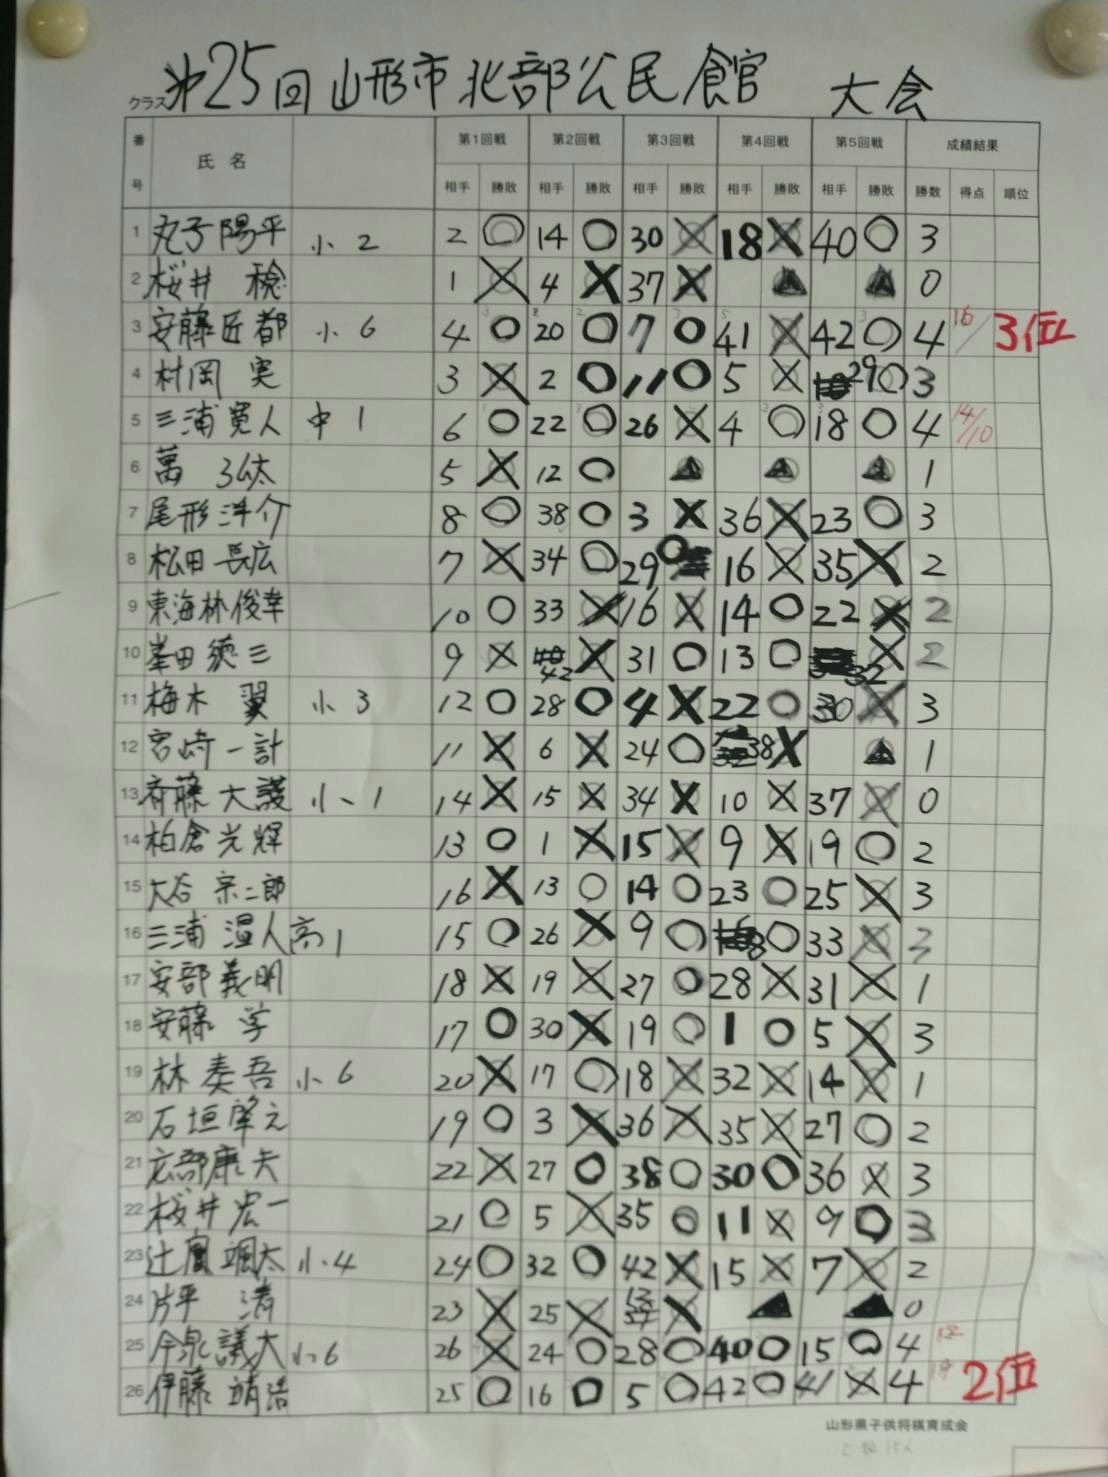 第25回山形市北部公民館 大会
クラス
番号 氏名 第1回戦 第2回戦 第3回戦 第4回戦 第5回戦 成績結果
相手 勝敗 相手 勝敗 相手 勝敗 相手 勝敗 相手 勝敗 勝数 得点 順位
1 丸子陽平 小2 2 ○ 14 ○ 30 × 18 × 40 ○ 3
2 桜井 稔 1 × 4 × 37 × ▲ ▲ 0
3 安藤匠都 小6 4 ○ 20 ○ 7 ○ 41 × 42 ○ 4 16 3位
4 村岡 実 3 × 2 ○ 11 ○ 5 × 29 ○ 3
5 三浦寛人 中1 6 ○ 22 ○ 26 × 4 ○ 18 ○ 4 14/10
6 萬 弘太 5 × 12 ○ ▲ ▲ ▲ 1
7 尾形洋介 8 ○ 38 ○ 3 × 36 × 23 ○ 3
8 松田長広 7 × 34 ○ 29 ○ 16 × 35 × 2
9 東海林俊幸 10 ○ 33 × 16 × 14 ○ 22 × 2
10 峯田徳三 9 × 42 × 31 ○ 13 ○ 32 × 2
11 梅木 翼 小3 12 ○ 28 ○ 4 × 22 ○ 30 × 3
12 宮崎一計 11 × 6 × 24 ○ 38 × ▲ 1
13 斉藤大護 小1 14 × 15 × 34 × 10 × 37 × 0
14 柏倉光輝 13 ○ 1 × 15 × 9 × 19 ○ 2
15 大谷宗二郎 16 × 13 ○ 14 ○ 23 ○ 25 × 3
16 三浦 人 高1 15 ○ 26 × 9 ○ 8 ○ 33 × 3
17 安部義明 18 × 19 × 27 ○ 28 × 31 × 1
18 安藤 学 17 ○ 30 × 19 ○ 1 ○ 5 × 3
19 林 奏吾 小6 20 × 17 ○ 18 × 32 × 14 × 1
20 石垣 19 ○ 3 × 36 × 35 × 27 ○ 2
21 広部康夫 22 × 27 ○ 38 ○ 30 ○ 36 × 3
22 桜井宏一 21 ○ 5 × 35 ○ 11 × 9 ○ 3
23 辻 颯太 小4 24 ○ 32 ○ 42 × 15 × 7 × 2
24 片平 清 23 × 25 × × ▲ ▲ 0
25 今泉議大 小6 26 × 24 ○ 28 ○ 40 ○ 15 ○ 4 12
26 伊藤靖浩 25 ○ 16 ○ 5 ○ 42 ○ 41 × 4 19 2位
山形県子供将棋育成会